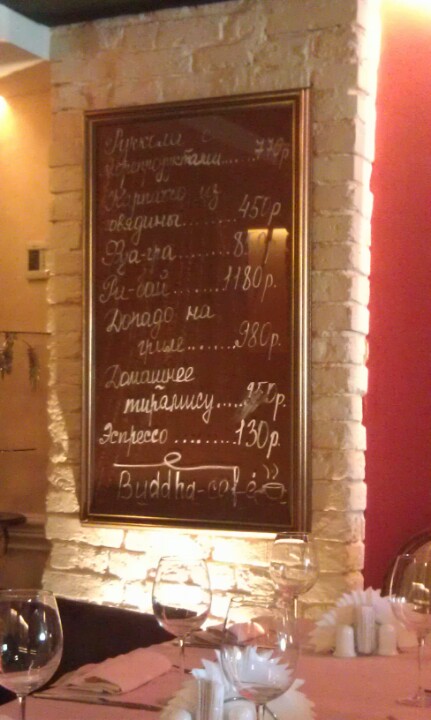 Руккола с
морепродуктами......770р
Карпаччо из
говядины........450р
Фуа-гра.........
Ри-бай.......1180р.
Дорадо на
гриле........980р.
Домашнее
тирамису.....
Эспрессо.........130р.
Buddha-café